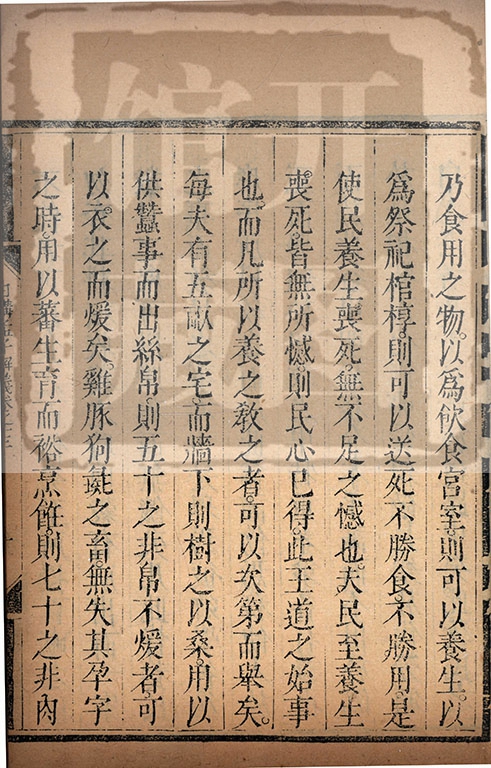 乃食用之物。以為飲食宮室。則可以養生。以
為祭祀棺椁。則可以送死。不勝食。不勝用。是
使民養生喪死。無不足之憾也。夫民至養生
喪死。皆無所憾。則民心已得。此王道之始事
也。而凡所以養之教之者。可以次第而舉矣。
每夫有五畝之宅。而牆下則樹之以桑。用以
供蠶事而出絲帛。則五十之非帛不煖者。可
以衣之而煖矣。雞豚狗彘之畜。無失其孕字
之時。用以蕃生育而裕烹飪。則七十之非肉